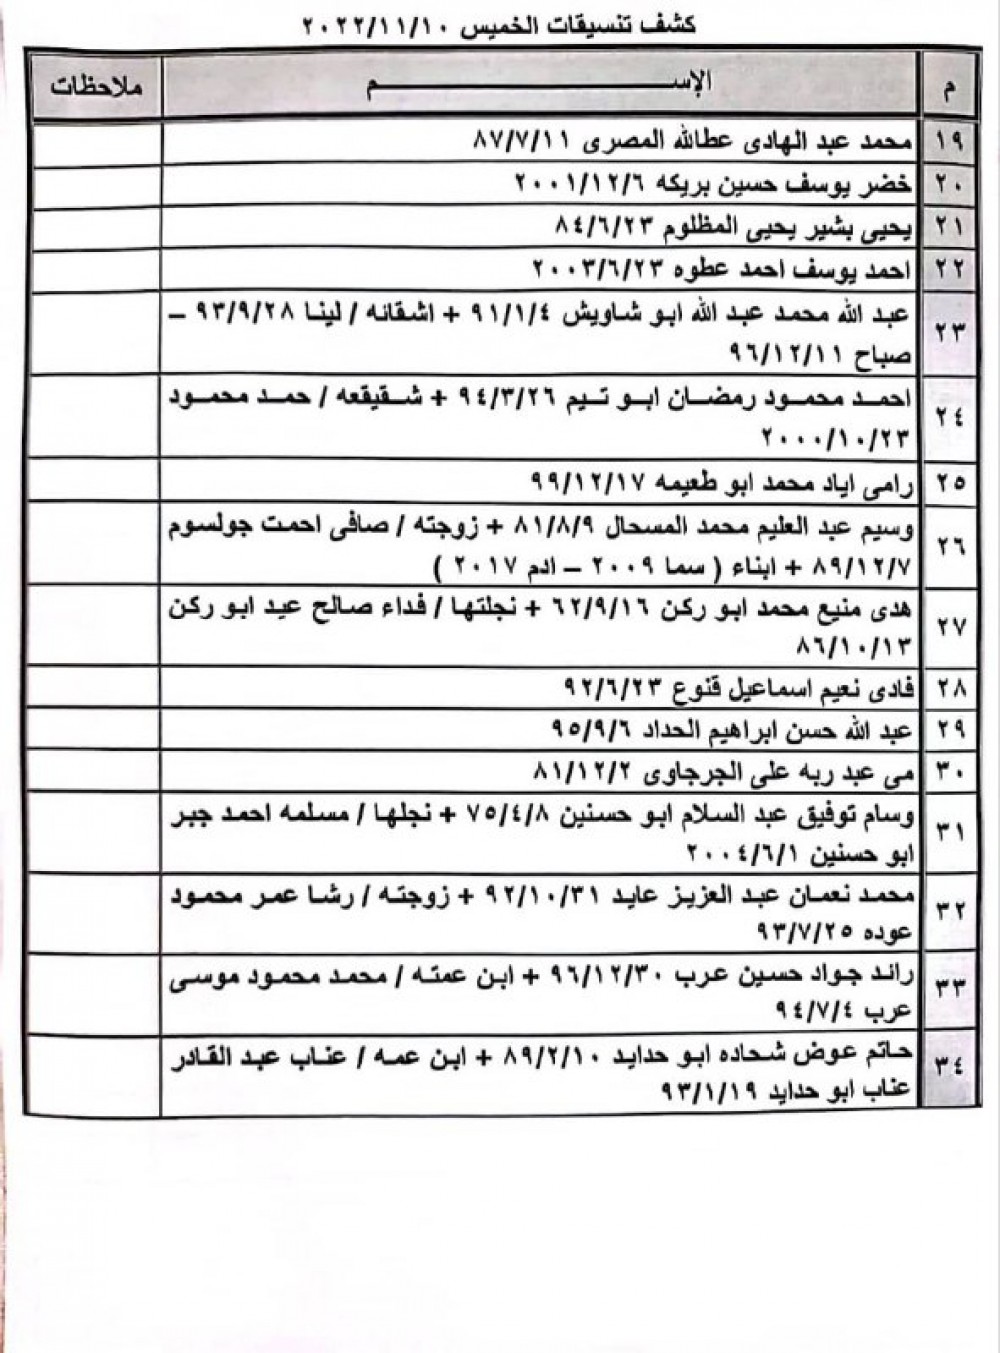 كشف تنسيقات الخميس ٢٠٢٢/١١/١٠
م الإســـــــــــم ملاحظات
١٩ محمد عبد الهادى عطالله المصرى ٨٧/٧/١١
٢٠ خضر يوسف حسين بريكه ٢٠٠١/١٢/٦
٢١ يحيى بشير يحيى المظلوم ٨٤/٦/٢٣
٢٢ احمد يوسف احمد عطوه ٢٠٠٣/٦/٢٣
٢٣ عبد الله محمد عبد الله ابو شاويش ٩١/١/٤ + اشقائه / لينا ٩٣/٩/٢٨ –
صباح ٩٦/١٢/١١
٢٤ احمد محمود رمضان ابو تيم ٩٤/٣/٢٦ + شقيقعه / حمد محمود
٢٠٠٠/١٠/٢٣
٢٥ رامى اياد محمد ابو طعيمه ٩٩/١٢/١٧
٢٦ وسيم عبد العليم محمد المسحال ٨١/٨/٩ + زوجته / صافى احمت جولسوم
٨٩/١٢/٧ + ابناء ( سما ٢٠٠٩ – ادم ٢٠١٧ )
٢٧ هدى منيع محمد ابو ركن ٦٢/٩/١٦ + نجلتها / فداء صالح عيد ابو ركن
٨٦/١٠/١٣
٢٨ فادى نعيم اسماعيل قنوع ٩٢/٦/٢٣
٢٩ عبد الله حسن ابراهيم الحداد ٩٥/٩/٦
٣٠ مى عبد ربه على الجرجاوى ٨١/١٢/٢
٣١ وسام توفيق عبد السلام ابو حسنين ٧٥/٤/٨ + نجلها / مسلمه احمد جبر
ابو حسنين ٢٠٠٤/٦/١
٣٢ محمد نعمان عبد العزيز عايد ٩٢/١٠/٣١ + زوجته / رشا عمر محمود
عوده ٩٣/٧/٢٥
٣٣ رائد جواد حسين عرب ٩٦/١٢/٣٠ + ابن عمته / محمد محمود موسى
عرب ٩٤/٧/٤
٣٤ حاتم عوض شحاده ابو حدايد ٨٩/٢/١٠ + ابن عمه / عناب عبد القادر
عناب ابو حدايد ٩٣/١/١٩